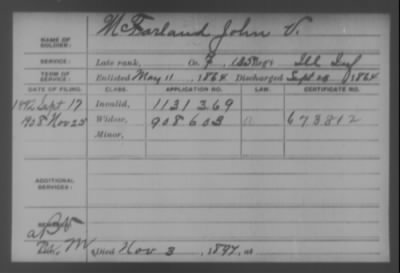 NAME OF SOLDIER: McFarland John V.
SERVICE: Late rank, Co. F, 135 Reg't Ill Inf
TERM OF SERVICE: Enlisted May 11, 1864 Discharged Sept 28, 1864
DATE OF FILING. CLASS. APPLICATION NO. LAW. CERTIFICATE NO.
1892 Sept 17 Invalid, 1131369
1908 Nov 25 Widow, 908603 673812
Minor,
ADDITIONAL SERVICES:
REMARKS:
Died Nov 3, 1897, at